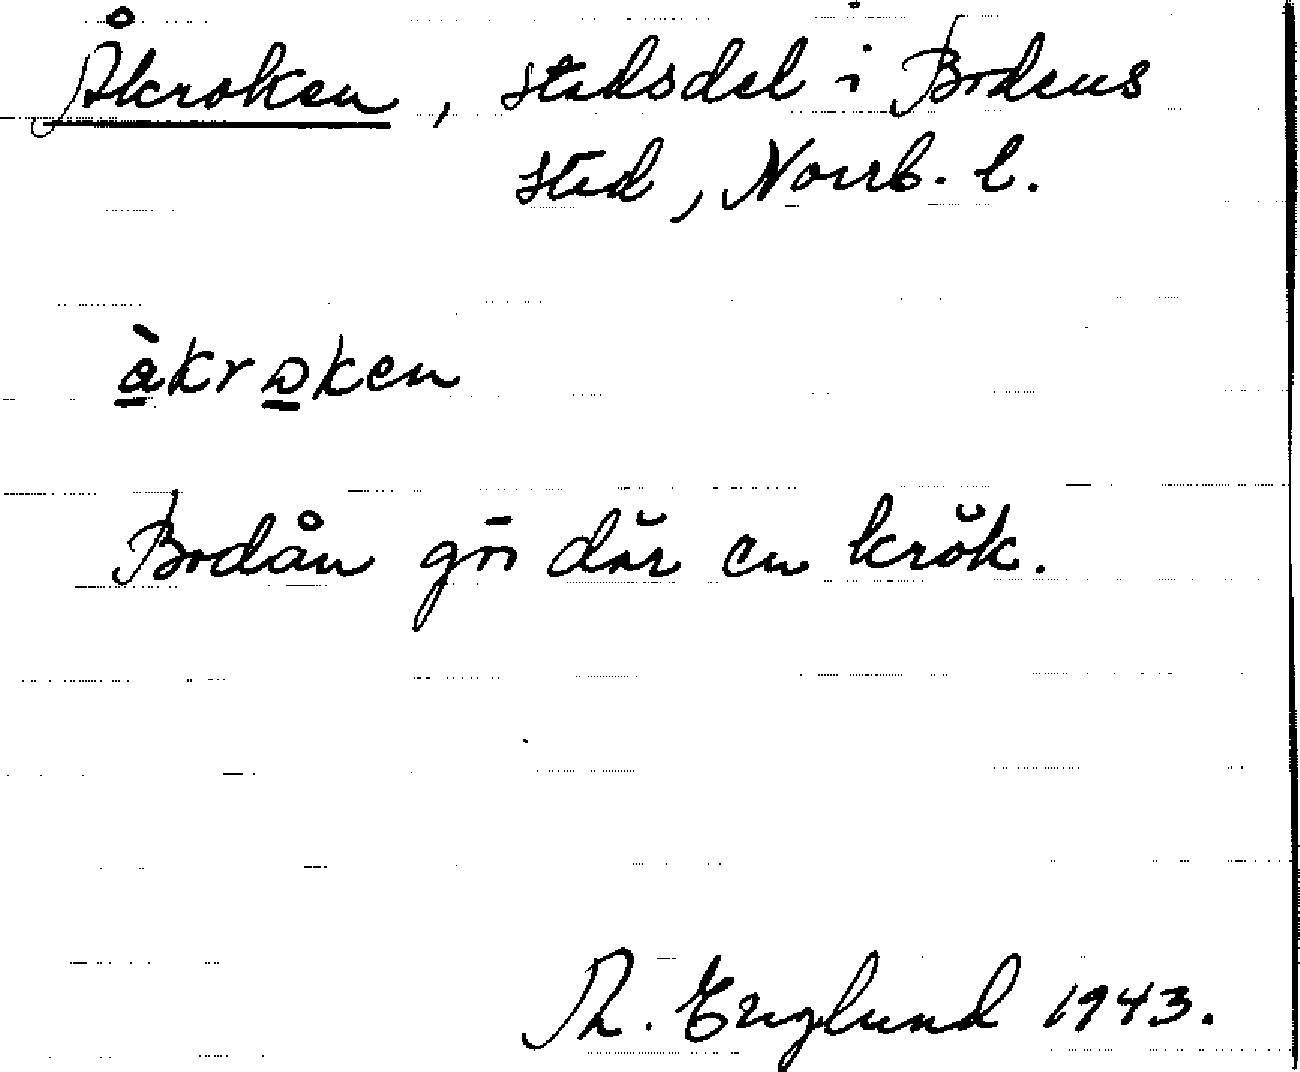 Åkroken, stadsdel i Bodens
stad, Norrb. l.
å̀kro̲ken
Bodån gör där en krök.
Th. Englund 1943.